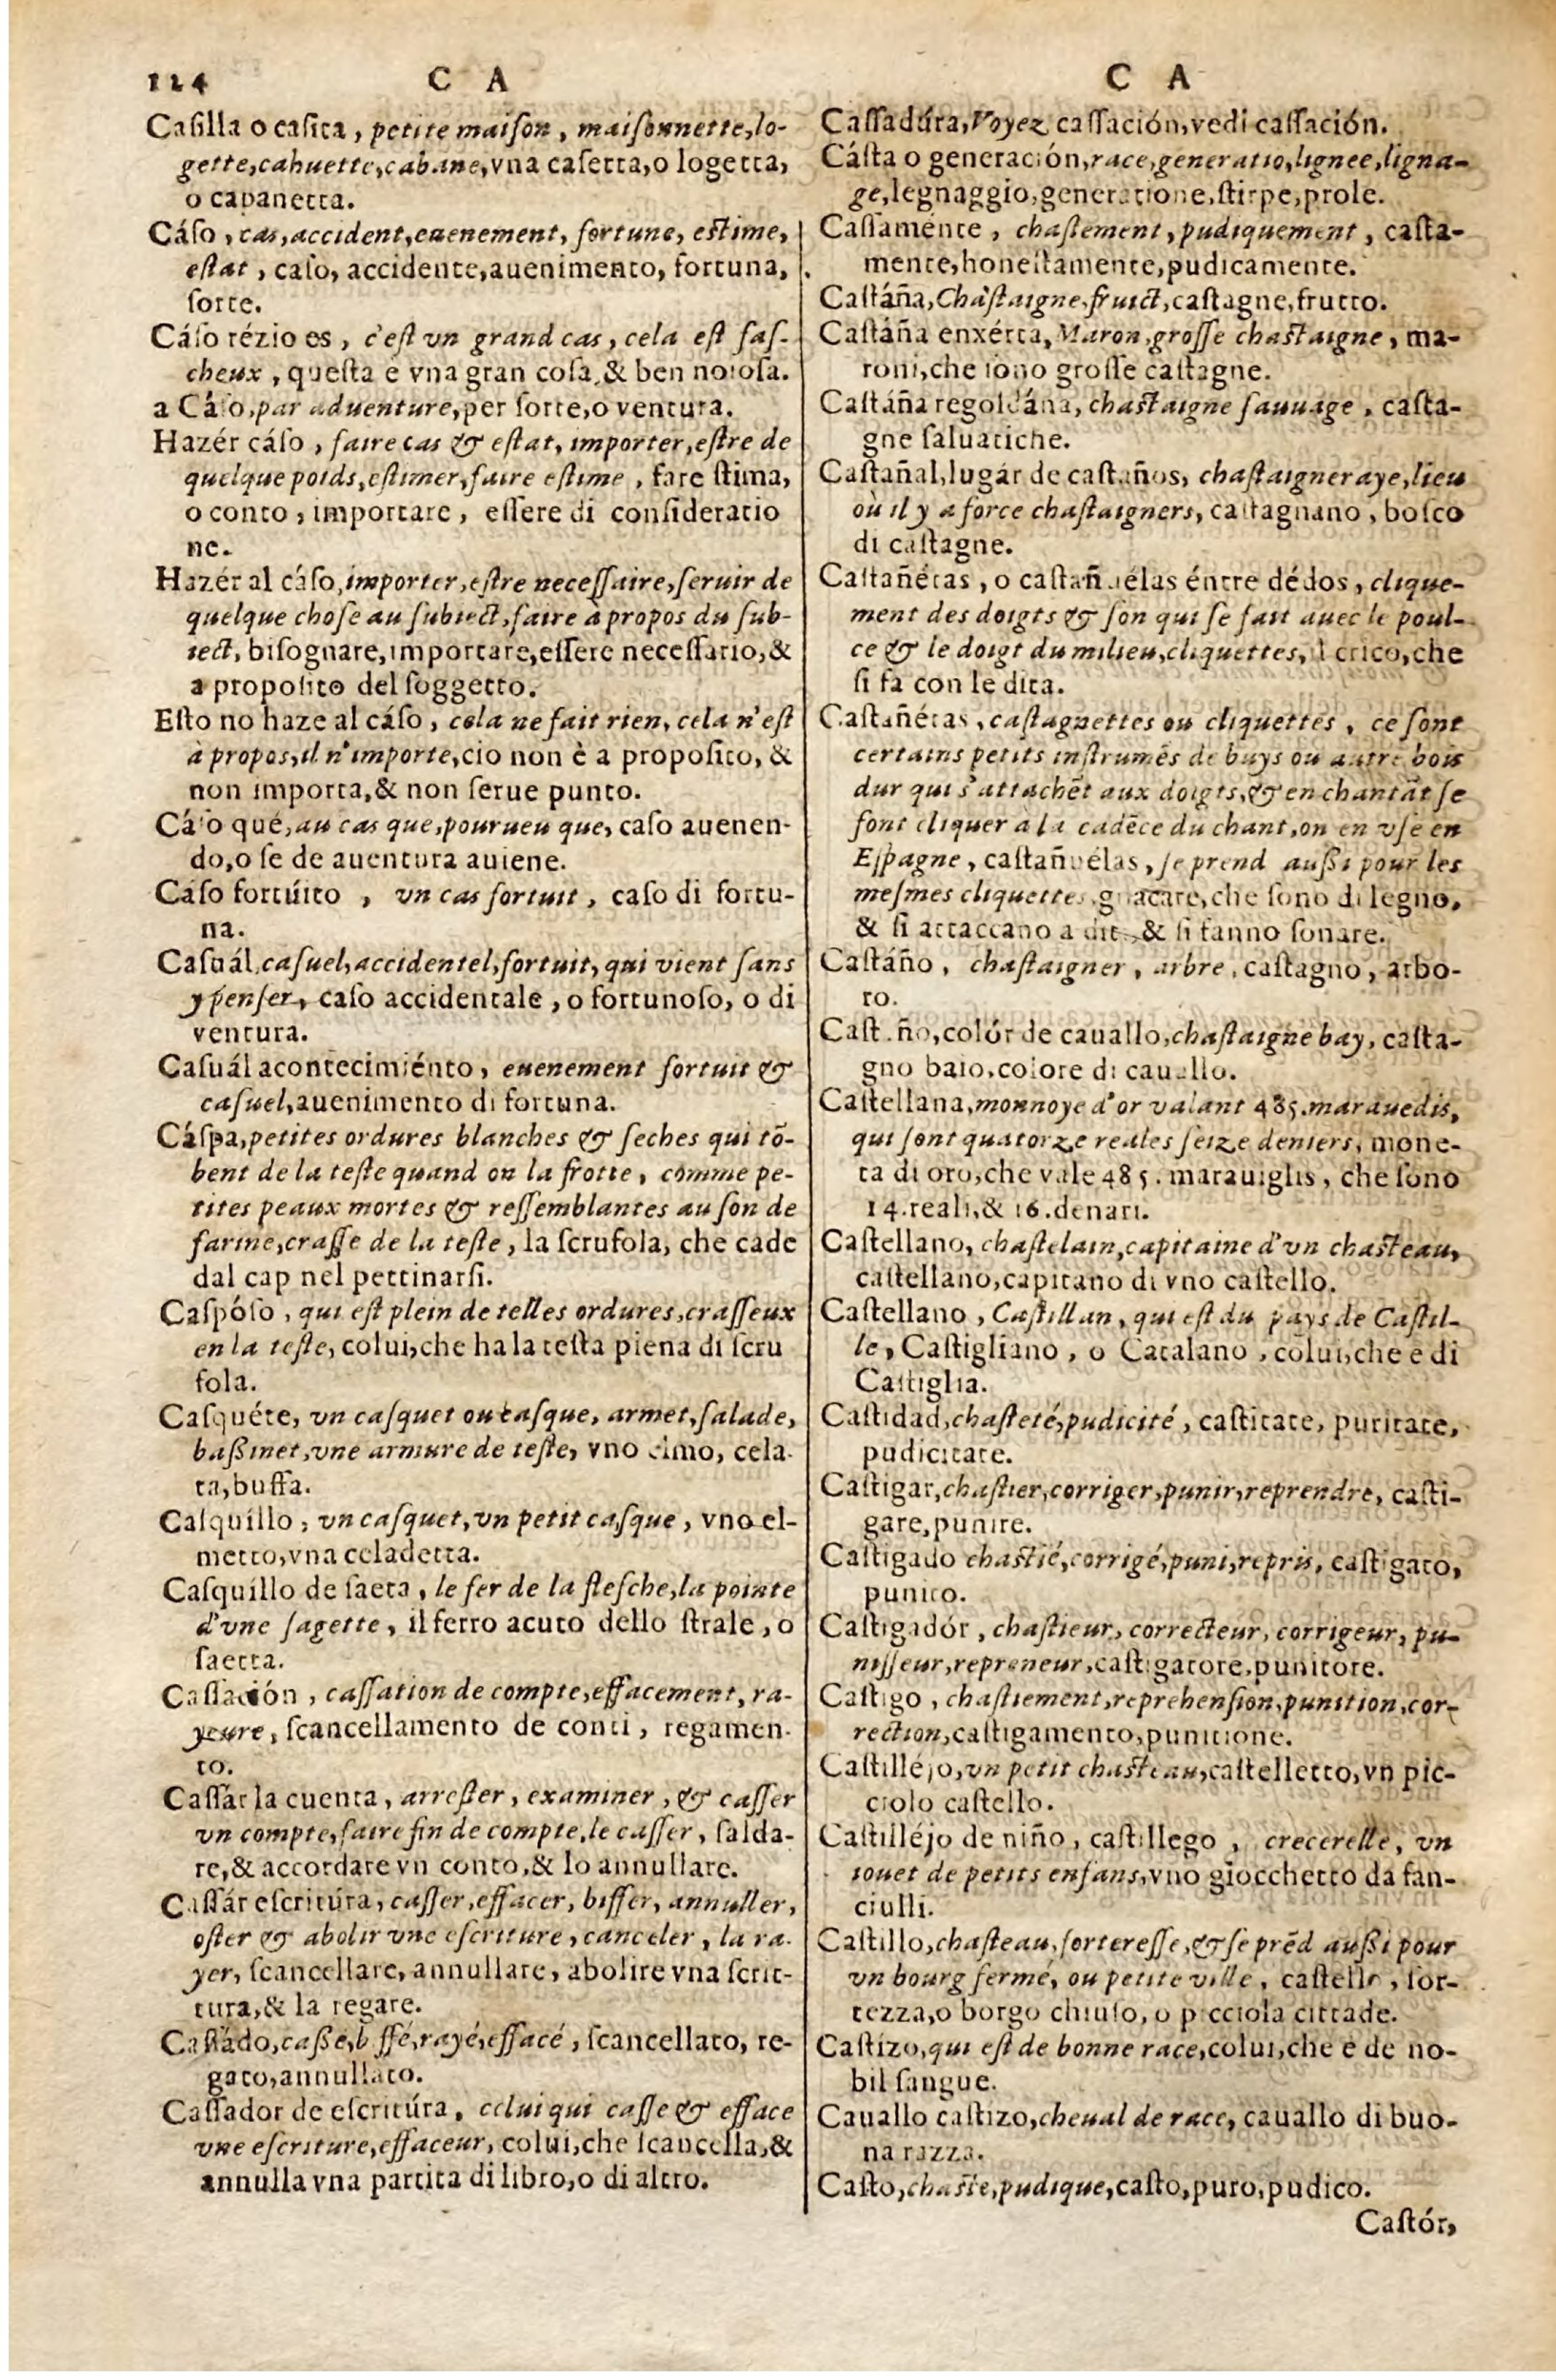 124 C A
Caſilla o caſita, petite maiſon, maiſonnette, lo-
gette, cahuette, cabane, vna caſetta, o logetta,
o capanetta.
Cáſo, cas, accident, euenement, fortune, estime,
estat, caſo, accidente, auenimento, fortuna,
ſorte.
Cáſo rézio es, c'eſt vn grand cas, cela eſt faſ-
cheux, queſta e vna gran coſa, & ben noioſa.
a Cáſo, par aduenture, per ſorte, o ventura.
Hazér cáſo, faire cas & eſtat, importer, eſtre de
quelque poids, eſtimer, faire eſtime, fare ſtima,
o conto, importare, eſſere di conſideratio
ne.
Hazér al cáſo, importer, eſtre neceſſaire, ſeruir de
quelque choſe au ſubiect, faire à propos du ſub-
iect, biſognare, importare, eſſere neceſſario, &
a propoſito del ſoggetto.
Eſto no haze al cáſo, cela ne fait rien, cela n'eſt
à propos, il n'importe, cio non è a propoſito, &
non importa, & non ſerue punto.
Cáſo qué, au cas que, pourueu que, caſo auenen-
do, o ſe de auentura auiene.
Cáſo fortúito, vn cas fortuit, caſo di fortu-
na.
Caſuál, caſuel, accidentel, fortuit, qui vient ſans
y penſer, caſo accidentale, o fortunoſo, o di
ventura.
Caſuál acontecimiénto, euenement fortuit &
caſuel, auenimento di fortuna.
Cáſpa, petites ordures blanches & ſeches qui tõ-
bent de la teſte quand on la frotte, comme pe-
tites peaux mortes & reſſemblantes au ſon de
farine, craſſe de la teſte, la ſcrufola, che cade
dal cap nel pettinarſi.
Caſpóſo, qui eſt plein de telles ordures, craſſeux
en la teſte, colui, che ha la teſta piena di ſcru
fola.
Caſquéte, vn caſquet ou caſque, armet, ſalade,
baßinet, vne armure de teſte, vno elmo, cela-
ta, buffa.
Caſquíllo, vn caſquet, vn petit caſque, vno el-
metto, vna celadetta.
Caſquíllo de ſaeta, le fer de la fleſche, la pointe
d'vne ſagette, il ferro acuto dello ſtrale, o
ſaetta.
Caſſación, caſſation de compte, effacement, ra-
yeure, ſcancellamento de conti, regamen-
to.
Caſſar la cuenta, arreſter, examiner, & caſſer
vn compte, faire fin de compte, le caſſer, ſalda-
re, & accordare vn conto, & lo annullare.
Caſſár eſcritúra, caſſer, effacer, biffer, annuller,
oſter & abolir vne eſcriture, canceler, la ra-
yer, ſcancellare, annullare, abolire vna ſcrit-
tura, & la regare.
Caſſádo, caßé, biffé, rayé, effacé, ſcancellato, re-
gato, annullato.
Caſſador de eſcritúra, celui qui caſſe & efface
vne eſcriture, effaceur, colui, che ſcancella, &
annulla vna partita di libro, o di altro.
C A
Caſſadúra, Voyez caſſación, vedi caſſación.
Cáſta o generación, race, generatio, lignee, ligna-
ge, legnaggio, generatione, ſtirpe, prole.
Caſtaménte, chaſtement, pudiquement, caſta-
mente, honeſtamente, pudicamente.
Caſtáña, Chaſtaigne, fruict, caſtagne, frutto.
Caſtáña enxérta, Maron, groſſe chaſtaigne, ma-
roni, che ſono groſſe caſtagne.
Caſtáña regoldána, chaſtaigne ſauuage, caſta-
gne ſaluatiche.
Caſtañal, lugár de caſtaños, chaſtaigneraye, lieu
où il y a force chaſtaigners, caſtagnano, boſco
di caſtagne.
Caſtañétas, o caſtañuélas éntre dédos, clique-
ment des doigts & ſon qui ſe fait auec le poul-
ce & le doigt du milieu, cliquettes, il crico, che
ſi fa con le dita.
Caſtañétas, caſtagnettes ou cliquettes, ce ſont
certains petits inſtrumẽs de buys ou autre bois
dur qui s'attachẽt aux doigts, & en chantãt ſe
font cliquer a la cadẽce du chant, on en vſe en
Eſpagne, caſtañuélas, ſe prend außi pour les
meſmes cliquettes, gnacare, che ſono di legno,
& ſi attaccano a dit, & ſi fanno ſonare.
Caſtáño, chaſtaigner, arbre, caſtagno, arbo-
ro.
Caſtaño, colór de cauallo, chaſtaigne bay, caſta-
gno baio, colore di cauallo.
Caſtellana, monnoye d'or valant 485. marauedis,
qui ſont quatorze reales ſeize deniers, mone-
ta di oro, che vale 485. marauiglis, che ſono
14. reali, & 16. denari.
Caſtellano, chaſtelain, capitaine d'vn chaſteau,
caſtellano, capitano di vno caſtello.
Caſtellano, Caſtillan, qui eſt du pays de Caſtil-
le, Caſtigliano, o Catalano, colui, che e di
Caſtiglia.
Caſtidad, chaſteté, pudicité, caſtitate, puritate,
pudicitate.
Caſtigar, chaſtier, corriger, punir, reprendre, caſti-
gare, punire.
Caſtigado chaſtié, corrigé, puni, repris, caſtigato,
punito.
Caſtigadór, chaſtieur, correcteur, corrigeur, pu-
niſſeur, repreneur, caſtigatore, punitore.
Caſtigo, chaſtiement, reprehenſion, punition, cor-
rection, caſtigamento, punitione.
Caſtilléjo, vn petit chaſteau, caſtelletto, vn pic-
ciolo caſtello.
Caſtilléjo de niño, caſtillego, crecerelle, vn
iouet de petits enfans, vno giocchetto da fan-
ciulli.
Caſtillo, chaſteau, fortereſſe, & ſe prẽd außi pour
vn bourg fermé, ou petite ville, caſtello, for-
tezza, o borgo chiuſo, o picciola cittade.
Caſtizo, qui eſt de bonne race, colui, che e de no-
bil ſangue.
Cauallo caſtizo, cheual de race, cauallo di buo-
na razza.
Caſto, chaſte, pudique, caſto, puro, pudico.
Caſtór,